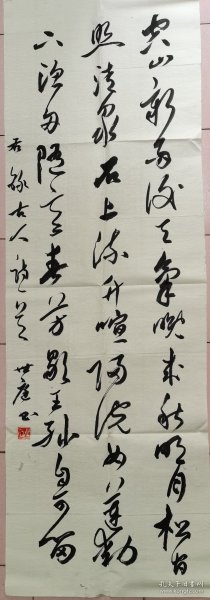 空山新雨后天气晚来秋明月松间
照清泉石上流竹喧归浣女莲动
下渔舟随意春芳歇王孙自可留
右录古人诗一首 世唐书